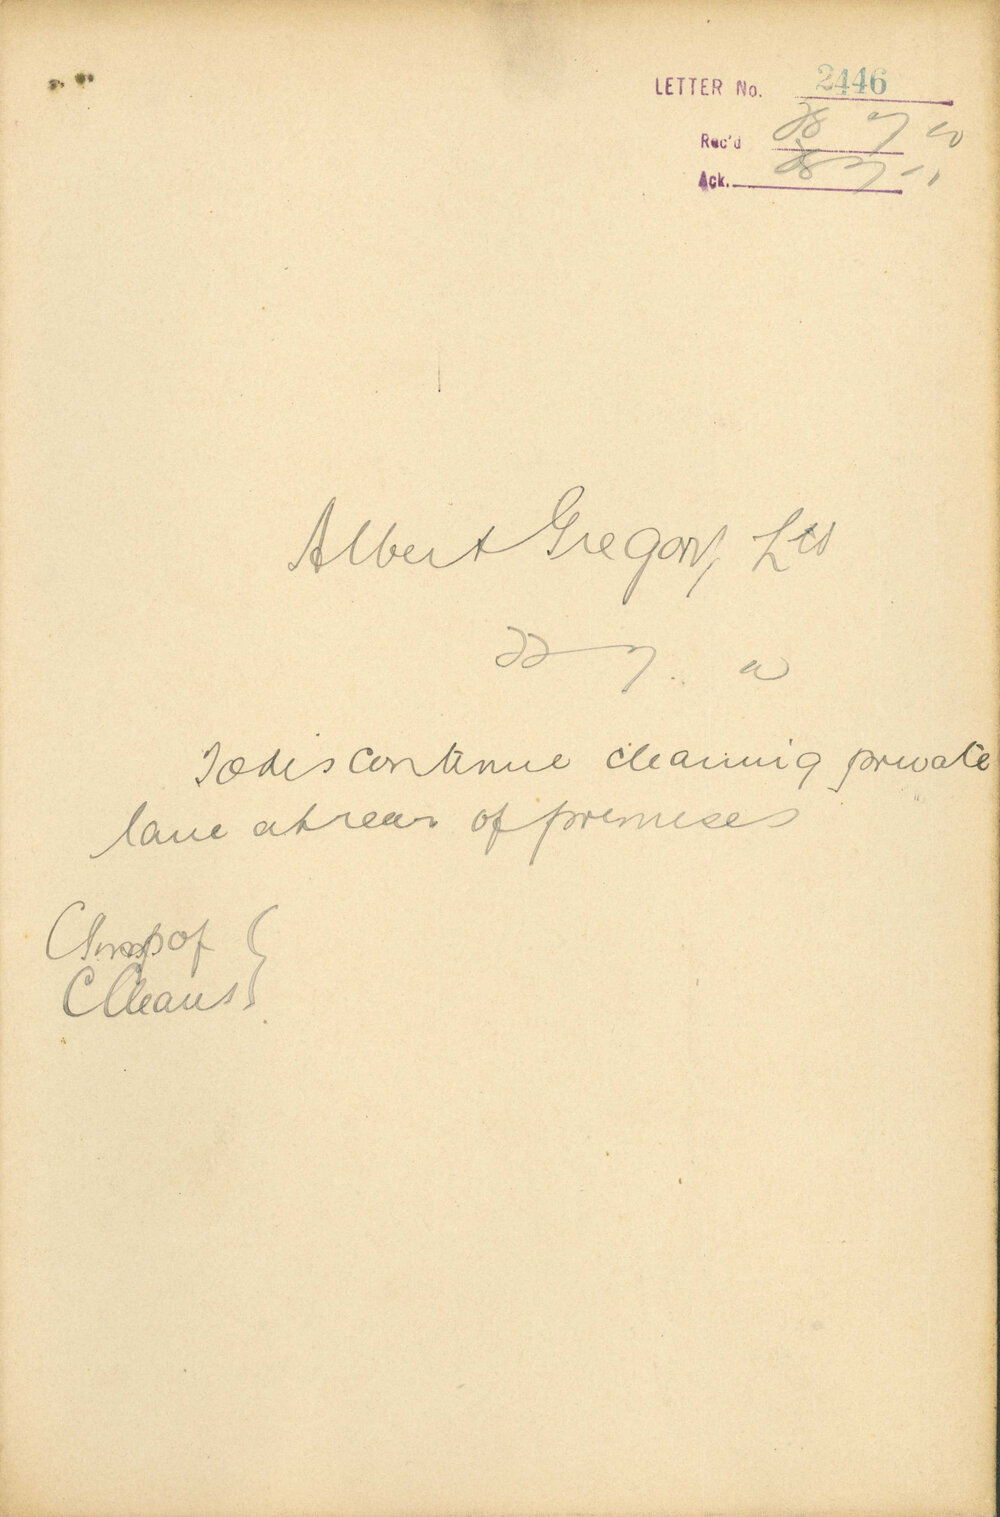 LETTER No. 2446
Rec'd 28 7
Ack. 28 7
Albert Gregory, Ltd
22 7
To discontinue cleaning private
lane at rear of premises
C Insp of
C Cleans